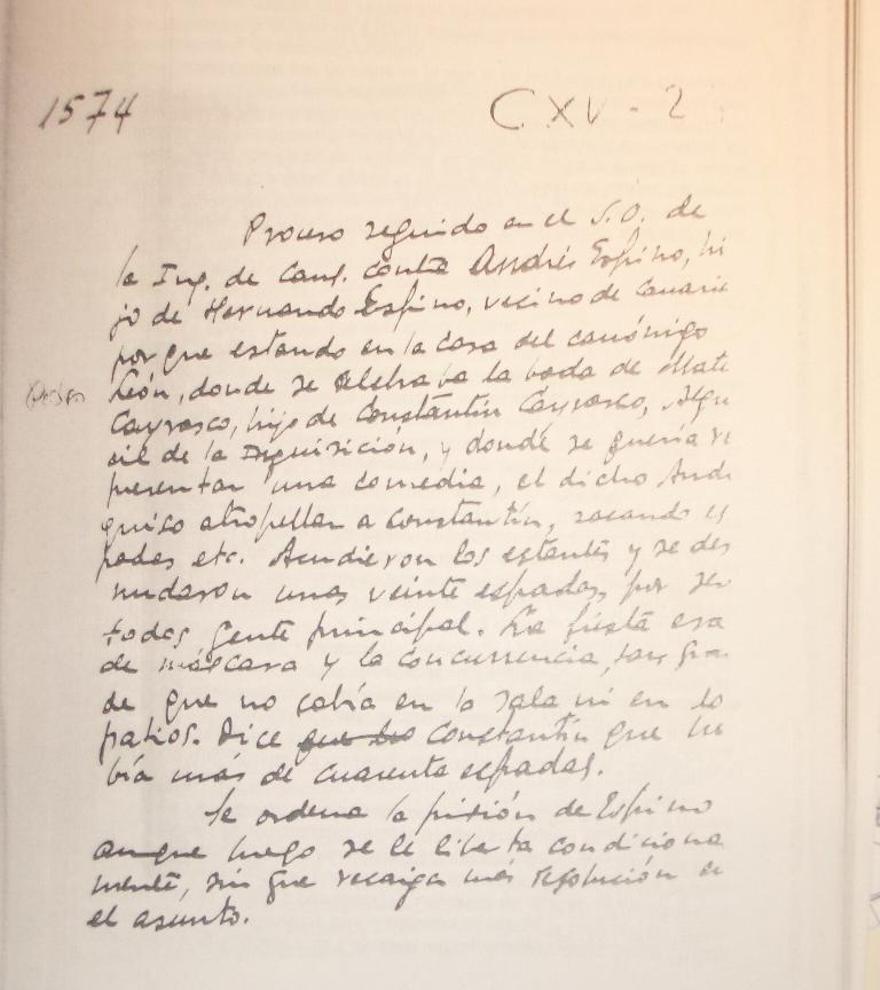 1574
CXV - 2
Proceso seguido en el S.O. de
la Inq. de Can. contra Andrés Espino, hi
jo de Hernando Espino, vecino de Canaria
por que estando en la casa del canónigo
León, donde se celebraba la boda de Mate
Cayrasco, hijo de Constantín Cayrasco, Algua
cil de la Inquisición, y donde se quería re
presentar una comedia, el dicho Andr
quiso atropellar a Constantín, sacando es
padas etc. Acudieron los estantes y se des
nudaron unas veinte espadas, por ser
todos gente principal. La fiesta era
de máscara y la concurrencia tan gran
de que no cabía en la sala ni en lo
patios. Dice que Constantín que ha
bía más de cuarenta espadas.
Se ordena la prisión de Espino
aunque luego se le liberta condiciona
mente, sin que recaiga más resolución en
el asunto.